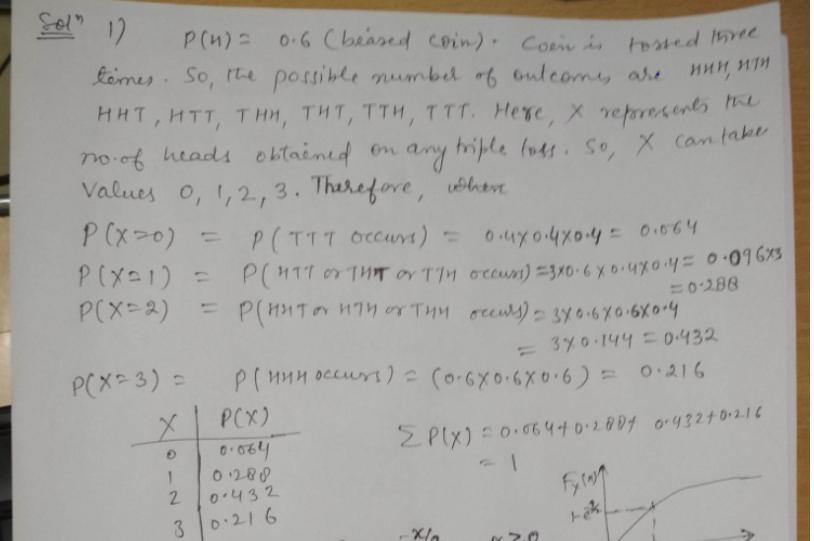 Sol^n 1) P(H) = 0.6 (beased coin). Coin is tossed three
times. So, the possible number of outcomes are HHH, HTH
HHT, HTT, THH, THT, TTH, TTT. Here, X represents the
no. of heads obtained on any triple toss. So, X can take
Values 0, 1, 2, 3. Therefore, when
P(X=0) = P(TTT occurs) = 0.4x0.4x0.4 = 0.064
P(X=1) = P(HTT or THT or TTH occurs) = 3x0.6x0.4x0.4 = 0.096x3
= 0.288
P(X=2) = P(HHT or HTH or THH occurs) = 3x0.6x0.6x0.4
= 3x0.144 = 0.432
P(X=3) = P(HHH occurs) = (0.6x0.6x0.6) = 0.216
X P(X)
0 0.064
1 0.288
2 0.432
3 0.216
Σ P(X) = 0.064+0.288+ 0.432+0.216
= 1
F_X(x)